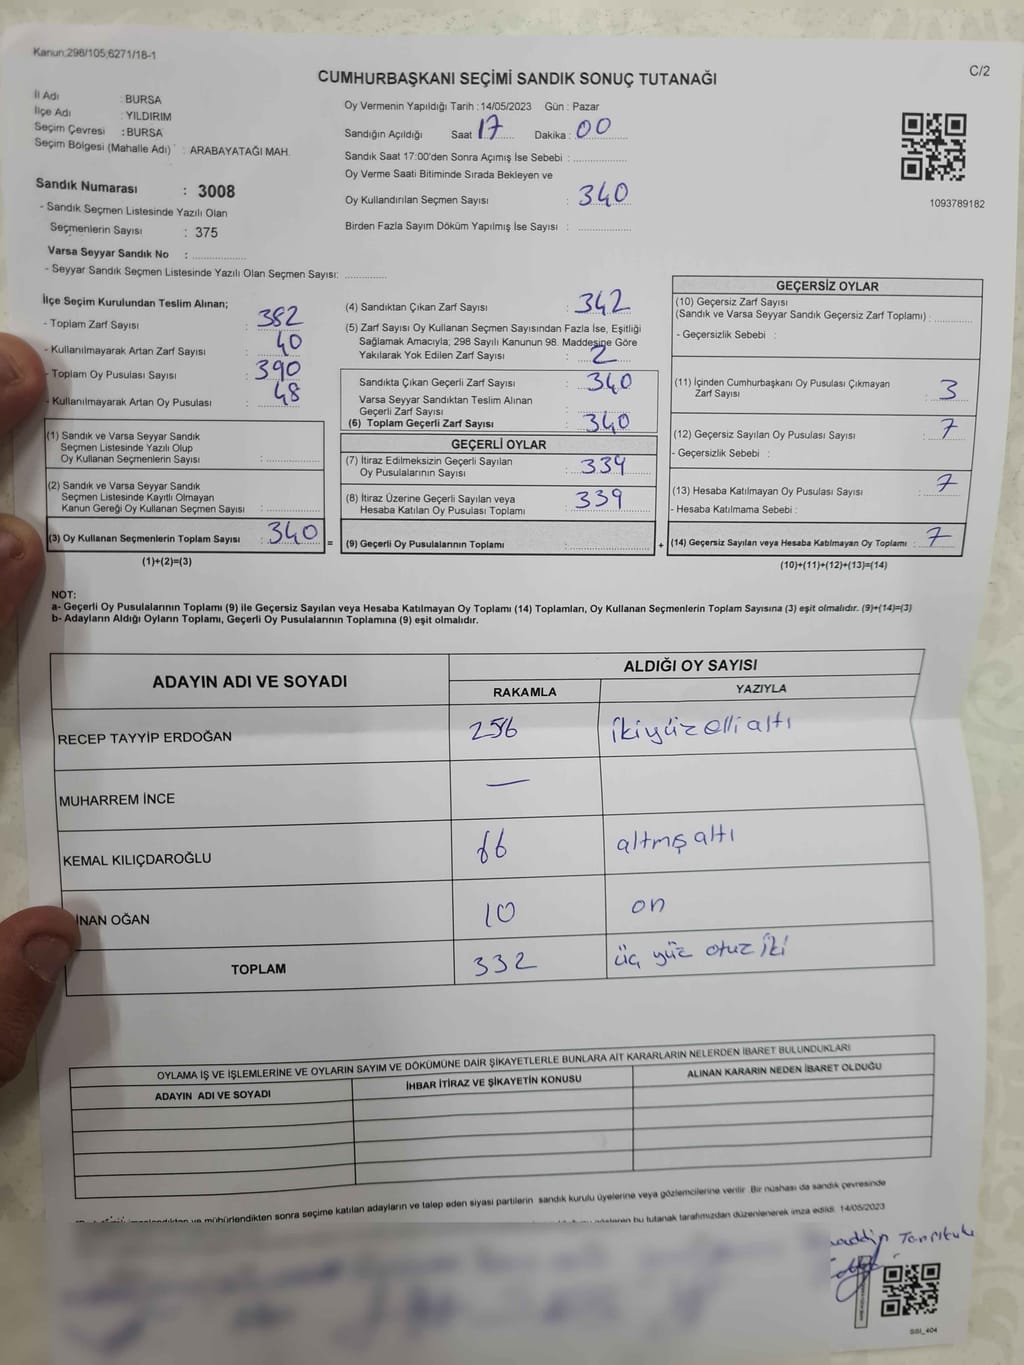 Kanun:298/105;6271/18-1
C/2
CUMHURBAŞKANI SEÇİMİ SANDIK SONUÇ TUTANAĞI
İl Adı : BURSA
İlçe Adı : YILDIRIM
Seçim Çevresi : BURSA
Seçim Bölgesi (Mahalle Adı) : ARABAYATAĞI MAH.
Sandık Numarası : 3008
- Sandık Seçmen Listesinde Yazılı Olan
Seçmenlerin Sayısı : 375
Varsa Seyyar Sandık No : ................
- Seyyar Sandık Seçmen Listesinde Yazılı Olan Seçmen Sayısı: ............
Oy Vermenin Yapıldığı Tarih : 14/05/2023 Gün : Pazar
Sandığın Açıldığı Saat 17 Dakika : 00
Sandık Saat 17:00'den Sonra Açımış İse Sebebi : ................
Oy Verme Saati Bitiminde Sırada Bekleyen ve
Oy Kullandırılan Seçmen Sayısı : 340
Birden Fazla Sayım Döküm Yapılmış İse Sayısı : ................
1093789182
İlçe Seçim Kurulundan Teslim Alınan;
- Toplam Zarf Sayısı : 382
- Kullanılmayarak Artan Zarf Sayısı : 40
- Toplam Oy Pusulası Sayısı : 390
- Kullanılmayarak Artan Oy Pusulası : 48
(1) Sandık ve Varsa Seyyar Sandık
Seçmen Listesinde Yazılı Olup
Oy Kullanan Seçmenlerin Sayısı : ................
(2) Sandık ve Varsa Seyyar Sandık
Seçmen Listesinde Kayıtlı Olmayan
Kanun Gereği Oy Kullanan Seçmen Sayısı : ................
(3) Oy Kullanan Seçmenlerin Toplam Sayısı : 340 =
(1)+(2)=(3)
(4) Sandıktan Çıkan Zarf Sayısı : 342
(5) Zarf Sayısı Oy Kullanan Seçmen Sayısından Fazla İse, Eşitliği
Sağlamak Amacıyla; 298 Sayılı Kanunun 98. Maddesine Göre
Yakılarak Yok Edilen Zarf Sayısı : 2
Sandıkta Çıkan Geçerli Zarf Sayısı : 340
Varsa Seyyar Sandıktan Teslim Alınan
Geçerli Zarf Sayısı
(6) Toplam Geçerli Zarf Sayısı : 340
GEÇERLİ OYLAR
(7) İtiraz Edilmeksizin Geçerli Sayılan
Oy Pusulalarının Sayısı : 339
(8) İtiraz Üzerine Geçerli Sayılan veya
Hesaba Katılan Oy Pusulası Toplamı : 339
(9) Geçerli Oy Pusulalarının Toplamı : ................ +
GEÇERSİZ OYLAR
(10) Geçersiz Zarf Sayısı
(Sandık ve Varsa Seyyar Sandık Geçersiz Zarf Toplamı) : ............
- Geçersizlik Sebebi :
(11) İçinden Cumhurbaşkanı Oy Pusulası Çıkmayan
Zarf Sayısı : 3
(12) Geçersiz Sayılan Oy Pusulası Sayısı : 7
- Geçersizlik Sebebi :
(13) Hesaba Katılmayan Oy Pusulası Sayısı : 7
- Hesaba Katılmama Sebebi :
(14) Geçersiz Sayılan veya Hesaba Katılmayan Oy Toplamı : 7
(10)+(11)+(12)+(13)=(14)
NOT:
a- Geçerli Oy Pusulalarının Toplamı (9) ile Geçersiz Sayılan veya Hesaba Katılmayan Oy Toplamı (14) Toplamları, Oy Kullanan Seçmenlerin Toplam Sayısına (3) eşit olmalıdır. (9)+(14)=(3)
b- Adayların Aldığı Oyların Toplamı, Geçerli Oy Pusulalarının Toplamına (9) eşit olmalıdır.
ADAYIN ADI VE SOYADI
ALDIĞI OY SAYISI
RAKAMLA YAZIYLA
RECEP TAYYİP ERDOĞAN 256 ikiyüz elli altı
MUHARREM İNCE —
KEMAL KILIÇDAROĞLU 66 altmış altı
İNAN OĞAN 10 on
TOPLAM 332 üç yüz otuz iki
OYLAMA İŞ VE İŞLEMLERİNE VE OYLARIN SAYIM VE DÖKÜMÜNE DAİR ŞİKAYETLERLE BUNLARA AİT KARARLARIN NELERDEN İBARET BULUNDUKLARI
ADAYIN ADI VE SOYADI İHBAR İTİRAZ VE ŞİKAYETİN KONUSU ALINAN KARARIN NEDEN İBARET OLDUĞU
ve mühürlendikten sonra seçime katılan adayların ve talep eden siyasi partilerin sandık kurulu üyelerine veya gözlemcilerine verilir. Bir nüshası da sandık çevresinde
gösteren bu tutanak tarafımızdan düzenlenerek imza edildi. 14/05/2023
SSI_404